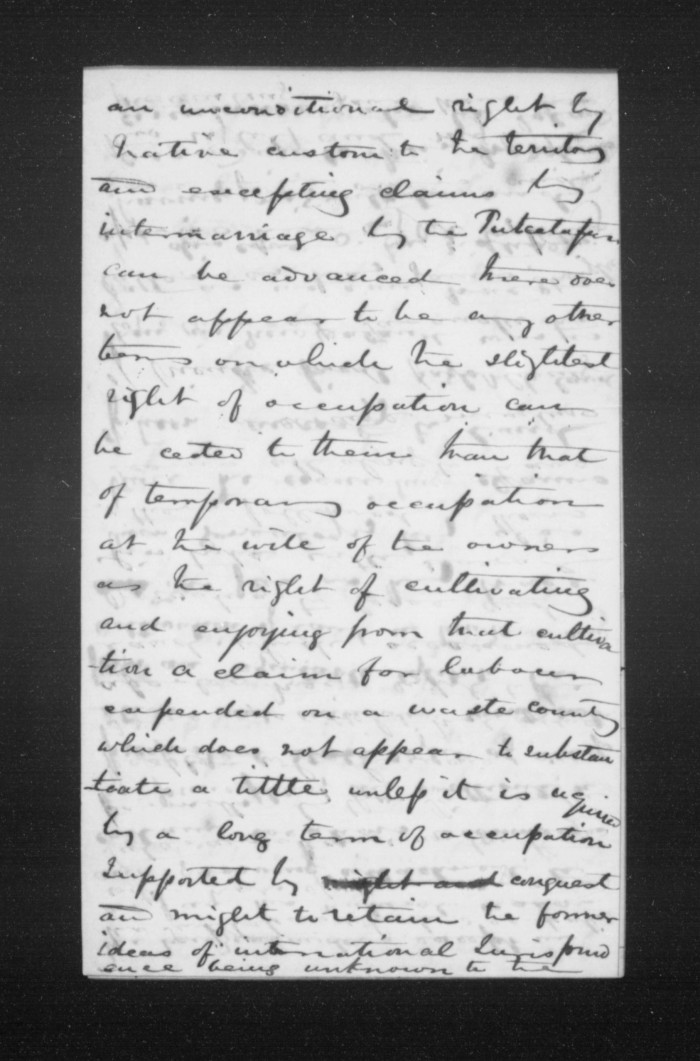 an unconditional right by
native custom to the Territory
and excepting claims by
intermarriage by the
can be advanced there does
not appear to be any other
terms on which the slightest
right of occupation can
be ceded to them than that
of temporary occupation
at the will of the owners
as the right of cultivating
and enjoying from that cultiva
tion a claim for labour
expended on a waste country
which does not appear to substan
tiate a tittle unless it is
by a long term of occupation
supported by right and conquest
and might to retain the former
ideas of international Jurisprud
ence being unknown to the